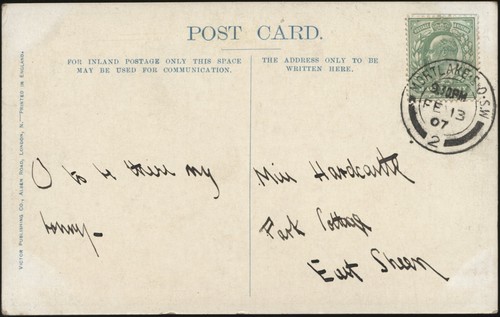 POST CARD.
FOR INLAND POSTAGE ONLY THIS SPACE
MAY BE USED FOR COMMUNICATION.
THE ADDRESS ONLY TO BE
WRITTEN HERE.
VICTOR PUBLISHING CO., ALBER ROAD, LONDON, N.—PRINTED IN ENGLAND.
MORTLAKE S.O. S.W
9.30PM
FE 13
07
2
O to
there my
Miss Hardcastle
Park Cottage
East Sheen